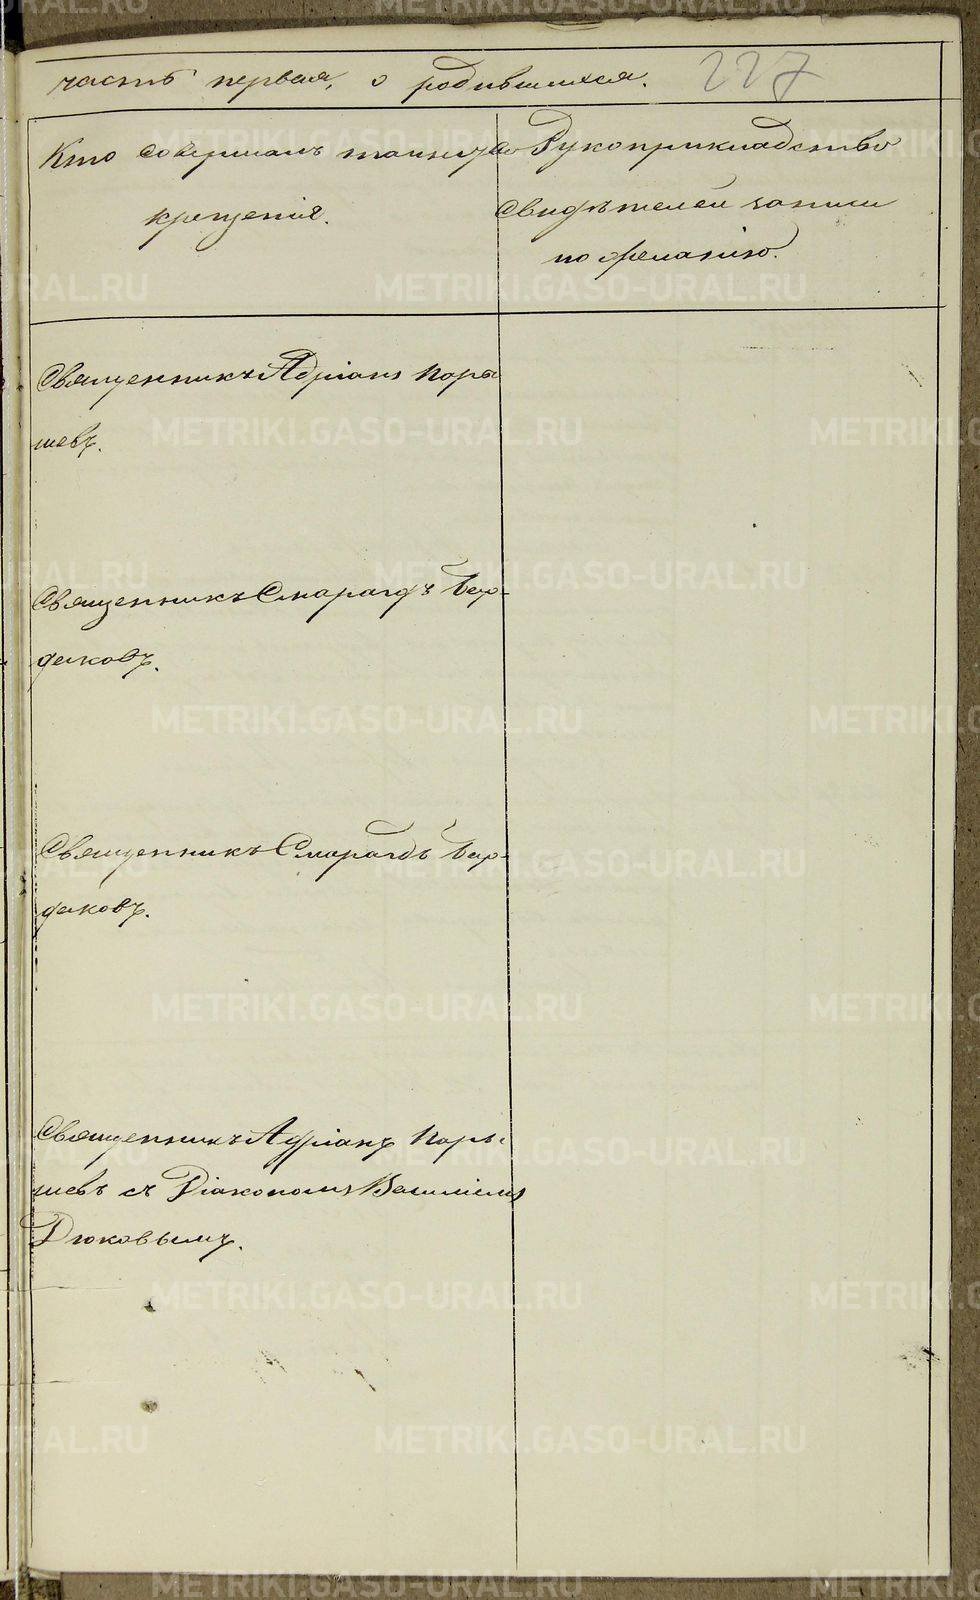 часть первая, о родившихся. 227
Кто совершалъ таинство
крещенія.
Рукоприкладство
свидѣтелей записи
по желанію.
Священникъ Адріанъ Пары
шевъ.
Священникъ Смарагдъ Бар-
даковъ.
Священникъ Смарагдъ Бар-
даковъ.
Священникъ Адріанъ Пары-
шевъ съ Діакономъ Василіемъ
Дюковымъ.
METRIKI.GASO-URAL.RU